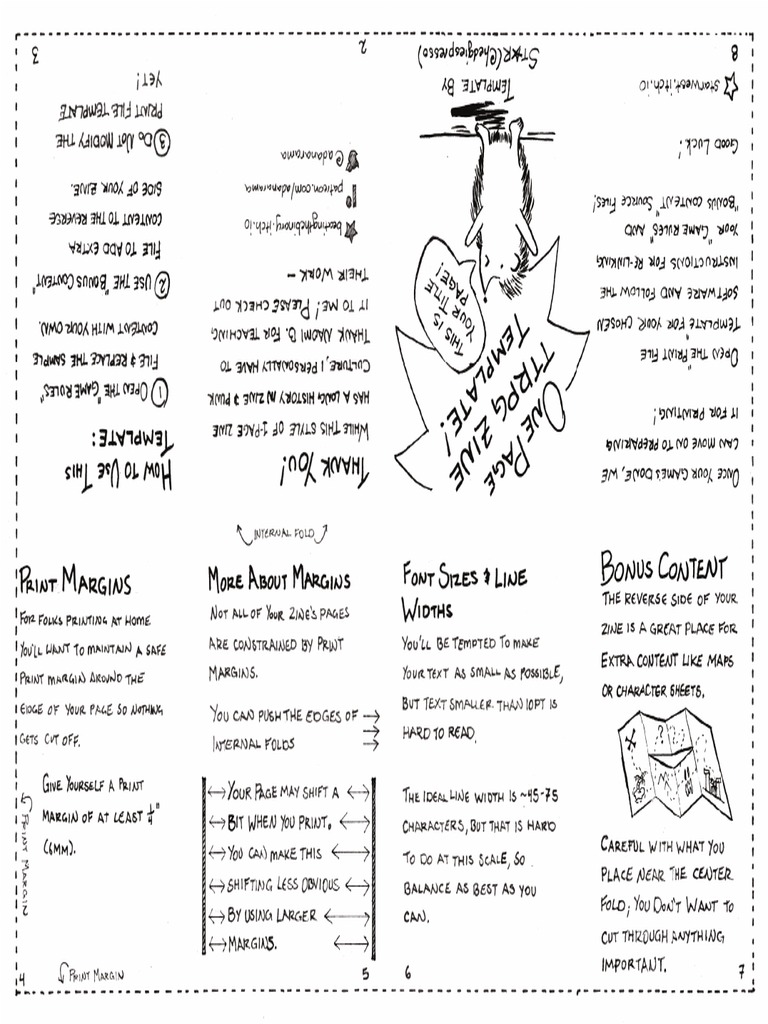 ONE PAGE
TTRPG ZINE
TEMPLATE!
THIS IS
YOUR TITLE
PAGE!
TEMPLATE BY
ST★R (Chedgiespresso)
THANK YOU!
WHILE THIS STYLE OF 1-PAGE ZINE
HAS A LONG HISTORY IN ZINE & PUNK
CULTURE, I PERSONALLY HAVE TO
THANK NAOMI B. FOR TEACHING
IT TO ME! PLEASE CHECK OUT
THEIR WORK –
beatingthebinary.itch.io
patreon.com/adanarama
@adanarama
2
HOW TO USE THIS
TEMPLATE:
① OPEN THE "GAME RULES"
FILE & REPLACE THE SAMPLE
CONTENT WITH YOUR OWN.
② USE THE "BONUS CONTENT"
FILE TO ADD EXTRA
CONTENT TO THE REVERSE
SIDE OF YOUR ZINE.
③ DO NOT MODIFY THE
PRINT FILE TEMPLATE
YET!
3
INTERNAL FOLD
PRINT MARGINS
FOR FOLKS PRINTING AT HOME
YOU'LL WANT TO MAINTAIN A SAFE
PRINT MARGIN AROUND THE
EDGE OF YOUR PAGE SO NOTHING
GETS CUT OFF.
GIVE YOURSELF A PRINT
MARGIN OF AT LEAST 1/4"
(6MM).
PRINT MARGIN
PRINT MARGIN
4
MORE ABOUT MARGINS
NOT ALL OF YOUR ZINE'S PAGES
ARE CONSTRAINED BY PRINT
MARGINS.
YOU CAN PUSH THE EDGES OF →
INTERNAL FOLDS →
↔ YOUR PAGE MAY SHIFT A ↔
↔ BIT WHEN YOU PRINT. ↔
↔ YOU CAN MAKE THIS ↔
↔ SHIFTING LESS OBVIOUS ↔
↔ BY USING LARGER ↔
↔ MARGINS. ↔
5
FONT SIZES & LINE
WIDTHS
YOU'LL BE TEMPTED TO MAKE
YOUR TEXT AS SMALL AS POSSIBLE,
BUT TEXT SMALLER THAN 10PT IS
HARD TO READ.
THE IDEAL LINE WIDTH IS ~45-75
CHARACTERS, BUT THAT IS HARD
TO DO AT THIS SCALE, SO
BALANCE AS BEST AS YOU
CAN.
6
BONUS CONTENT
THE REVERSE SIDE OF YOUR
ZINE IS A GREAT PLACE FOR
EXTRA CONTENT LIKE MAPS
OR CHARACTER SHEETS.
CAREFUL WITH WHAT YOU
PLACE NEAR THE CENTER
FOLD; YOU DON'T WANT TO
CUT THROUGH ANYTHING
IMPORTANT.
7
ONCE YOUR GAME'S DONE, WE,
CAN MOVE ON TO PREPARING
IT FOR PRINTING!
OPEN THE "PRINT FILE
TEMPLATE" FOR YOUR CHOSEN
SOFTWARE AND FOLLOW THE
INSTRUCTIONS FOR RE-LINKING
YOUR "GAME RULES" AND
"BONUS CONTENT" SOURCE FILES!
GOOD LUCK!
starwest.itch.io
8